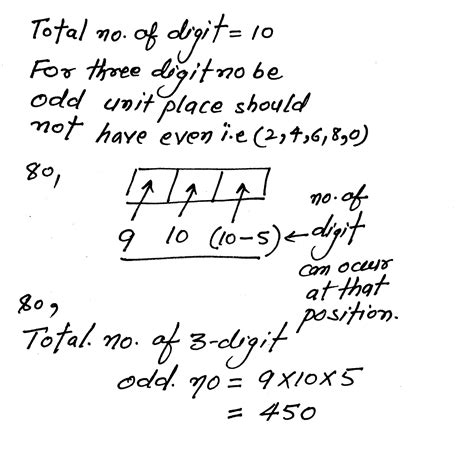 Total no. of digit = 10
For three digit no be
odd unit place should
not have even i.e (2,4,6,8,0)
so,
9 10 (10-5) ← no. of digit can occur at that position.
so,
Total. no. of 3-digit
odd. no = 9×10×5
= 450